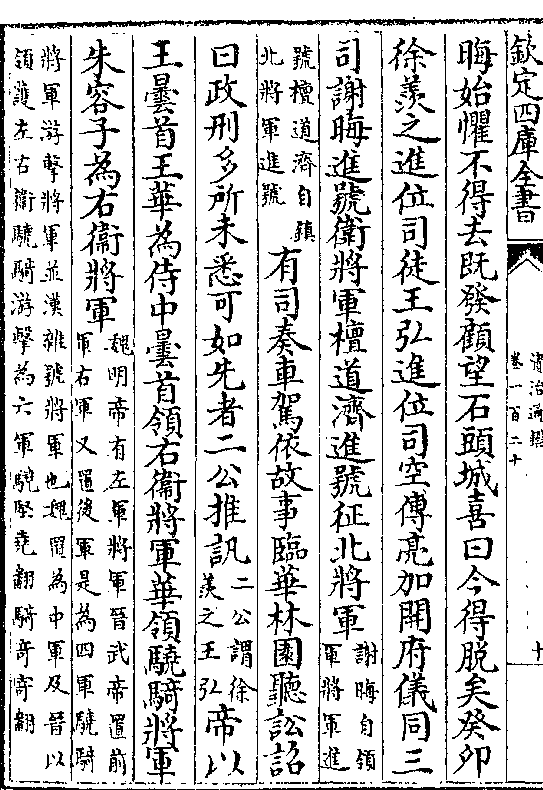 欽定四庫全書
資治通鑑
卷一百二十
十
晦始懼不得去既發顧望石頭城喜曰今得脫矣癸卯
徐羨之進位司徒王弘進位司空傅亮加開府儀同三
司謝晦進號衛將軍檀道濟進號征北將軍
謝晦自領
軍將軍進
號檀道濟自鎮
北將軍進號
有司奏車駕依故事臨華林園聽訟詔
曰政刑多所未悉可如先者二公推訊
二公謂徐
羨之王弘
帝以
王曇首王華為侍中曇首領右衛將軍華領驍騎將軍
朱容子為右衛將軍
魏明帝有左軍將軍晉武帝置前
軍右軍又置後軍是為四軍驍騎
將軍游擊將軍並漢雜號將軍也魏置為中軍及晉以
領護左右衛驍騎游擊為六軍